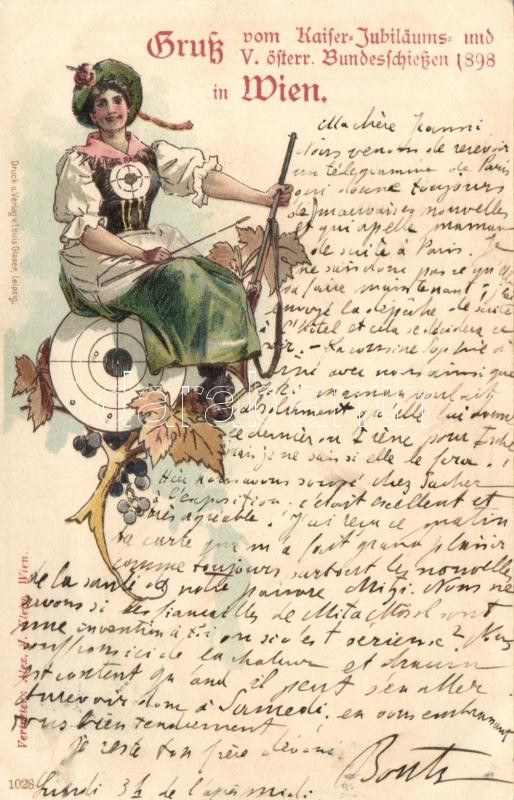 Gruß vom Kaiser-Jubiläums- und
V. österr. Bundesschießen 1898
in Wien.
Ma chère Jeanni
Nous venons de recevoir
un télégramme de Paris
qui donne toujours
de mauvaises nouvelles
et qui appelle maman
de suite à Paris. Je
ne sais donc pas ce qu'elle
va faire maintenant; j'ai
envoyé la dépêche de suite
à l'hôtel et cela se décidera ce
soir. - La cousine Sophie a
avec nous ainsi que
maman voulait
absolument qu'elle lui donne
le dernier ou Irène pour Ischl
mais je ne sais si elle le fera!
Hier nous avons soupé chez Sacher
à l'exposition. c'était excellent et
très agréable! J'ai reçu ce matin
ta carte qui m'a fait grand plaisir
comme toujours, surtout les nouvelles
de la santé de notre pauvre Mizi. Nous ne
savons si les fiançailles de Mita sont
une invention à toi, ou si c'est sérieux?
souffrons ici de la chaleur et chacun
est content quand il peut s'en aller.
Au revoir donc à Samedi. en vous embrassant
tous bien tendrement
je reste ton frère dévoué
Lundi 3h de l'après midi
Druck u. Verlag v. Louis Glaser, Leipzig.
Wien.
1028
darabanth